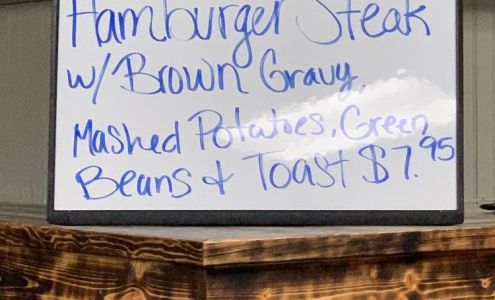 Hamburger Steak
w/ Brown Gravy,
Mashed Potatoes, Green
Beans & Toast $7.95